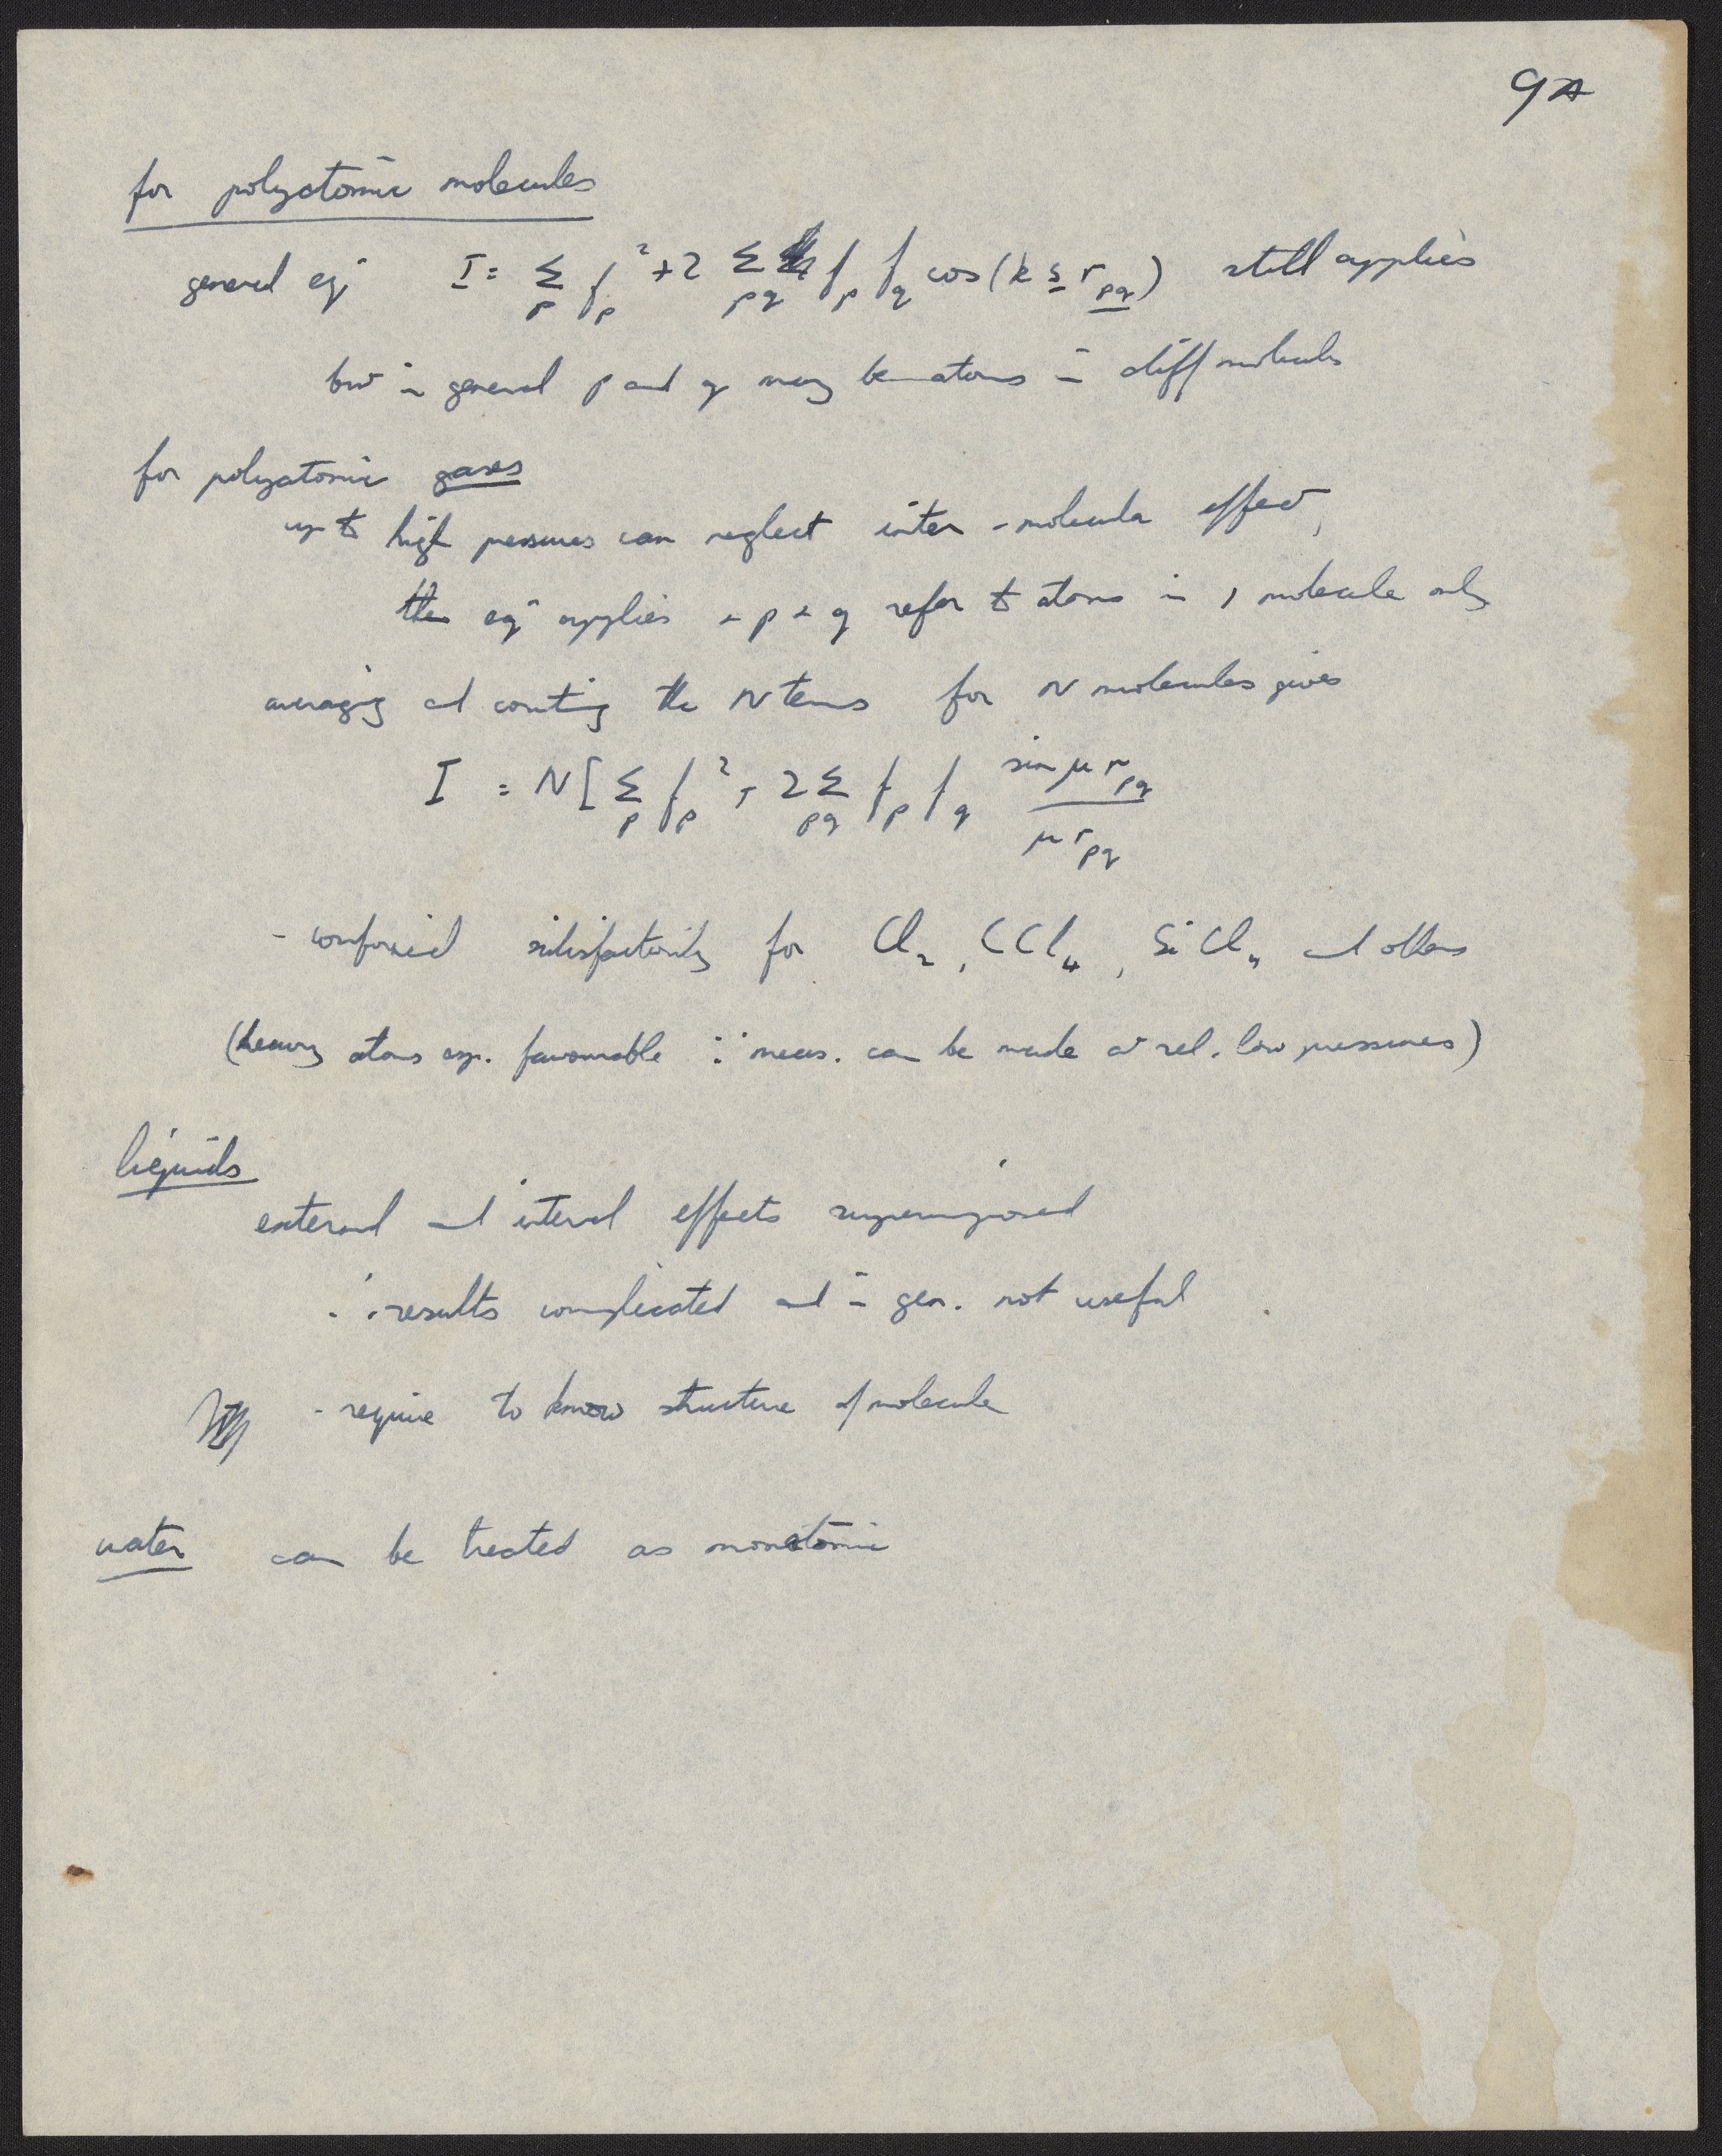 9A
for polyatomic molecules
general eqⁿ I = Σ_p f_p² + 2 Σ_pq f_p f_q cos(k s r_pq) still applies
but in general p and q may be atoms in diff molecules
for polyatomic gases
up to high pressures can neglect inter-molecular effect,
the eqⁿ applies + p + q refer to atoms in 1 molecule only
averaging and counting the N terms for N molecules gives
I = N [ Σ_p f_p² + 2 Σ_pq f_p f_q sin μ r_pq / μ r_pq
- confirmed satisfactorily for Cl₂, CCl₄, SiCl₄ and others
(heavy atoms esp. favourable ∵ meas. can be made at rel. low pressures)
liquids
external and internal effects superimposed
∴ results complicated and in gen. not useful
- require to know structure of molecule
water can be treated as monatomic